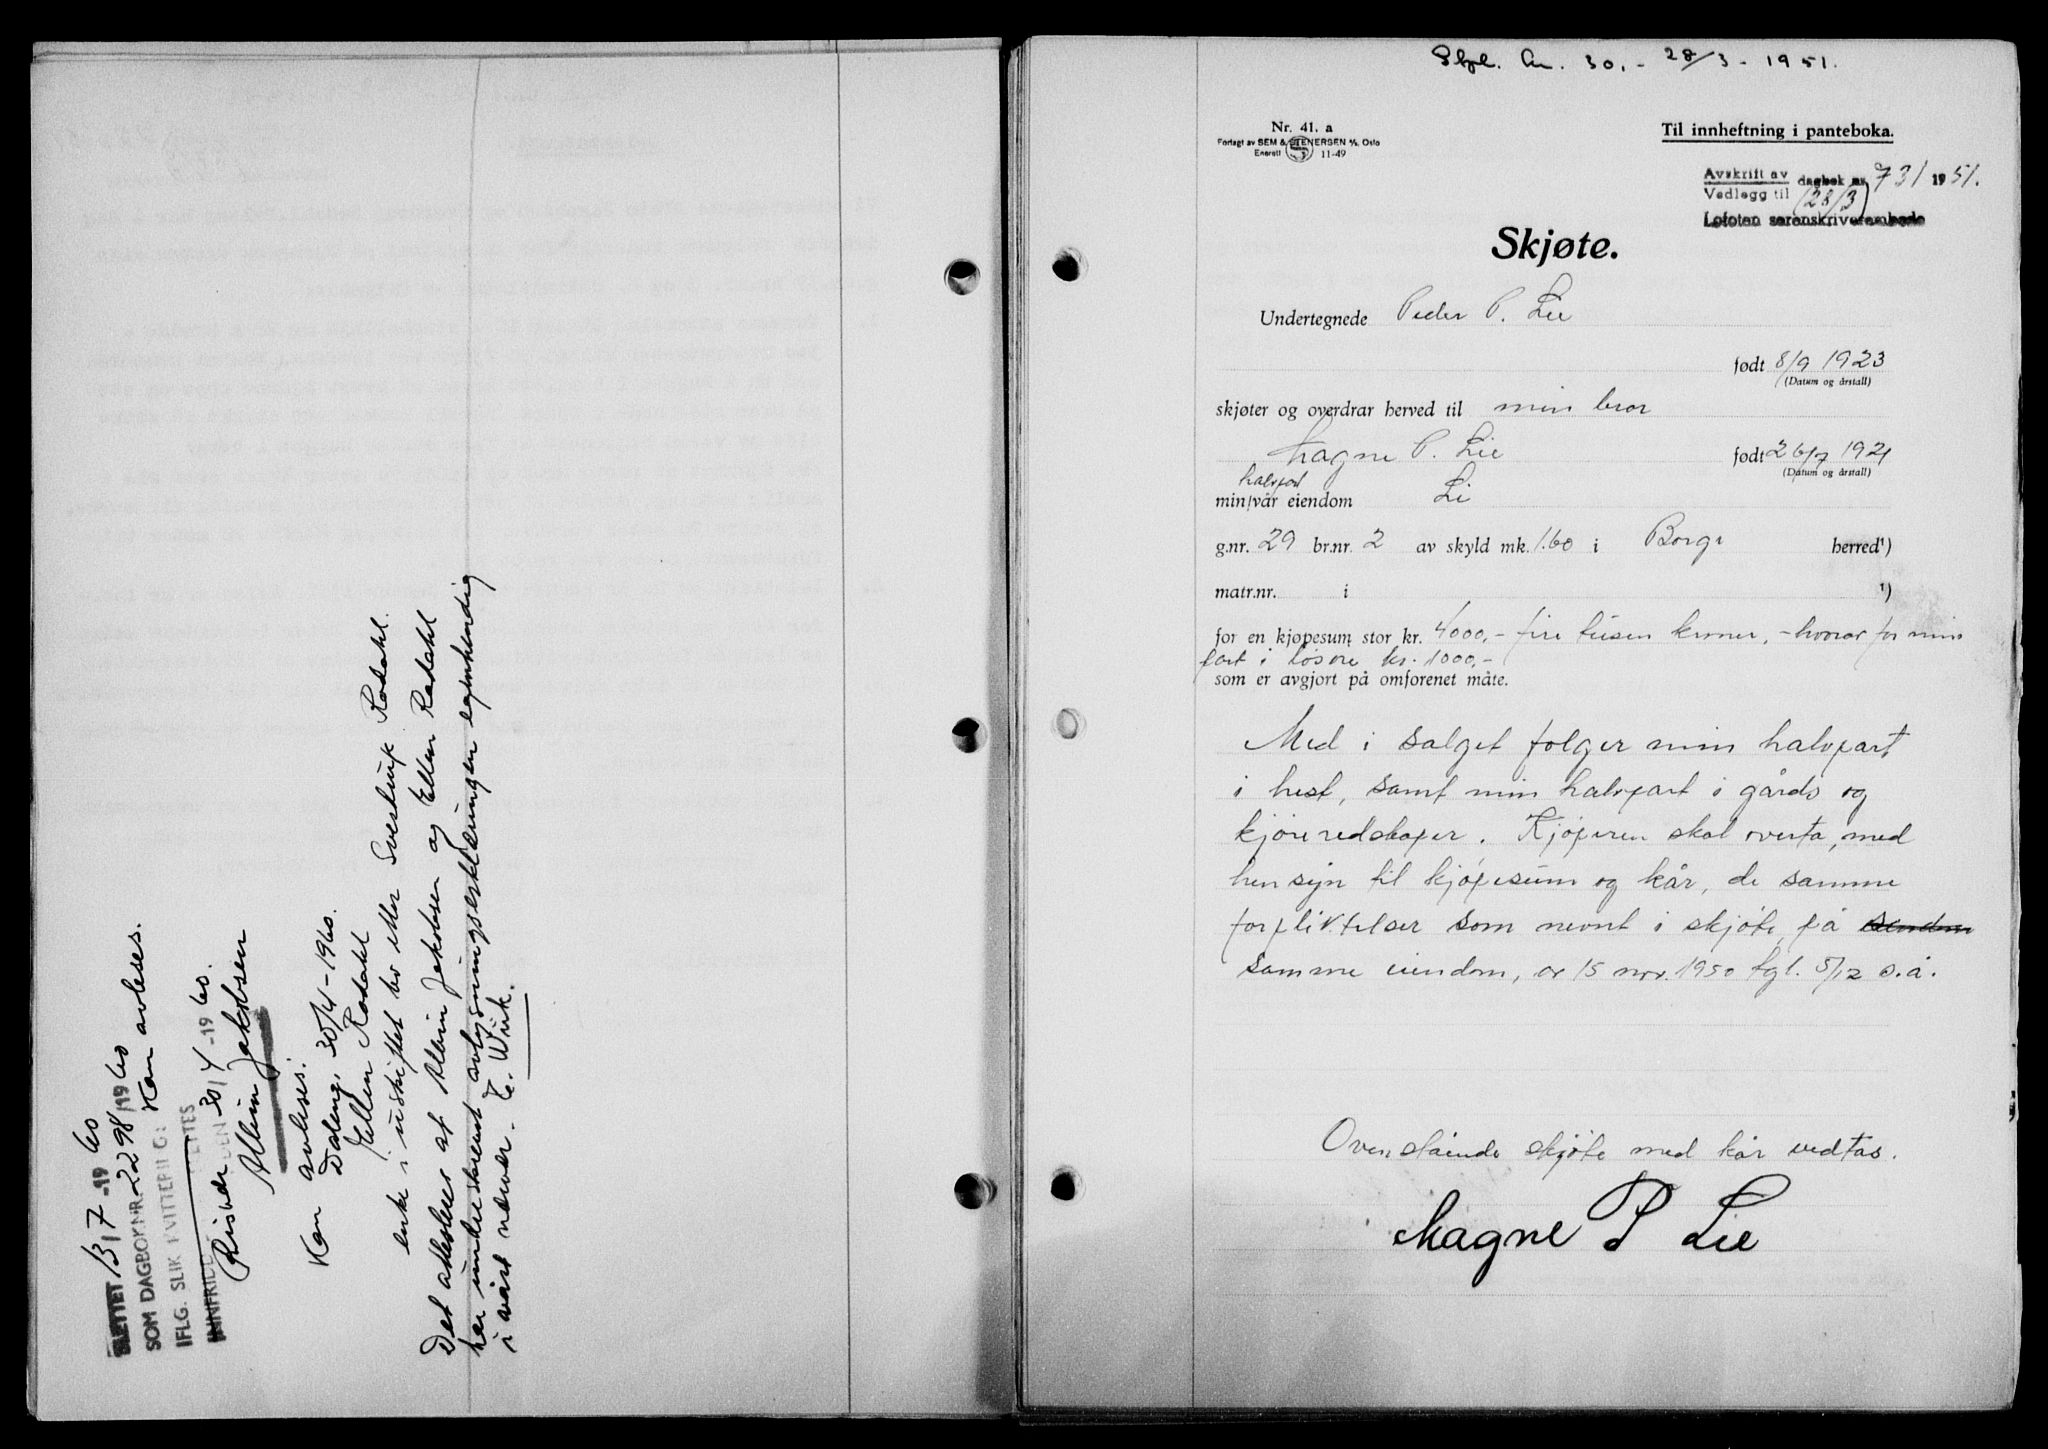 SLETTET 13/7-1960
SOM DAGBOKNR. 2298/1960
IFLG. SLIK KVITTERING: Kan avleses.
Risvær 30/4-1960.
Albin Jakobsen
Kan avleses.
Daleng, 30/4-1960.
Ellen Rødahl
enke i uskiftet bo etter Svestrup Rødahl.
Det attesteres at Albin Jakobsen og Ellen Rødahl
har underskrevet avlysningserklæringen egenhendig
i vårt nærvær. E. Wiik.
Skjl. nr. 30.- 28/3-1951.
Nr. 41. a
Forlagt av SEM & STENERSEN A/S, Oslo
Enerett S 11-49
Til innheftning i panteboka.
Avskrift av
Vedlegg til dagbok nr. 731 1951.
(28/3)
Lofoten sorenskriverembede
Skjøte.
Undertegnede Peder P. Lie
født 8/9 1923
(Datum og årstall)
skjøter og overdrar herved til min bror
Magne P. Lie født 26/7 1921
(Datum og årstall)
halvpart
min/vår eiendom Li
g.nr. 29 br.nr. 2 av skyld mk. 1.60 i Borge herred¹)
matr.nr. i ¹)
for en kjøpesum stor kr. 4000,- fire tusen kroner, - hvorav for min
part i løsøre kr. 1000,-
som er avgjort på omforenet måte.
Med i salget følger min halvpart
i hest, samt min halvpart i gårds og
kjøreredskaper. Kjøperen skal overta, med
hensyn til kjøpesum og kår, de samme
forpliktelser som nevnt i skjøte på eiendom
samme eiendom, av 15 nov. 1950 tgl. 5/12 s.å.
Ovenstående skjøte med kår vedtas.
Magne P Lie